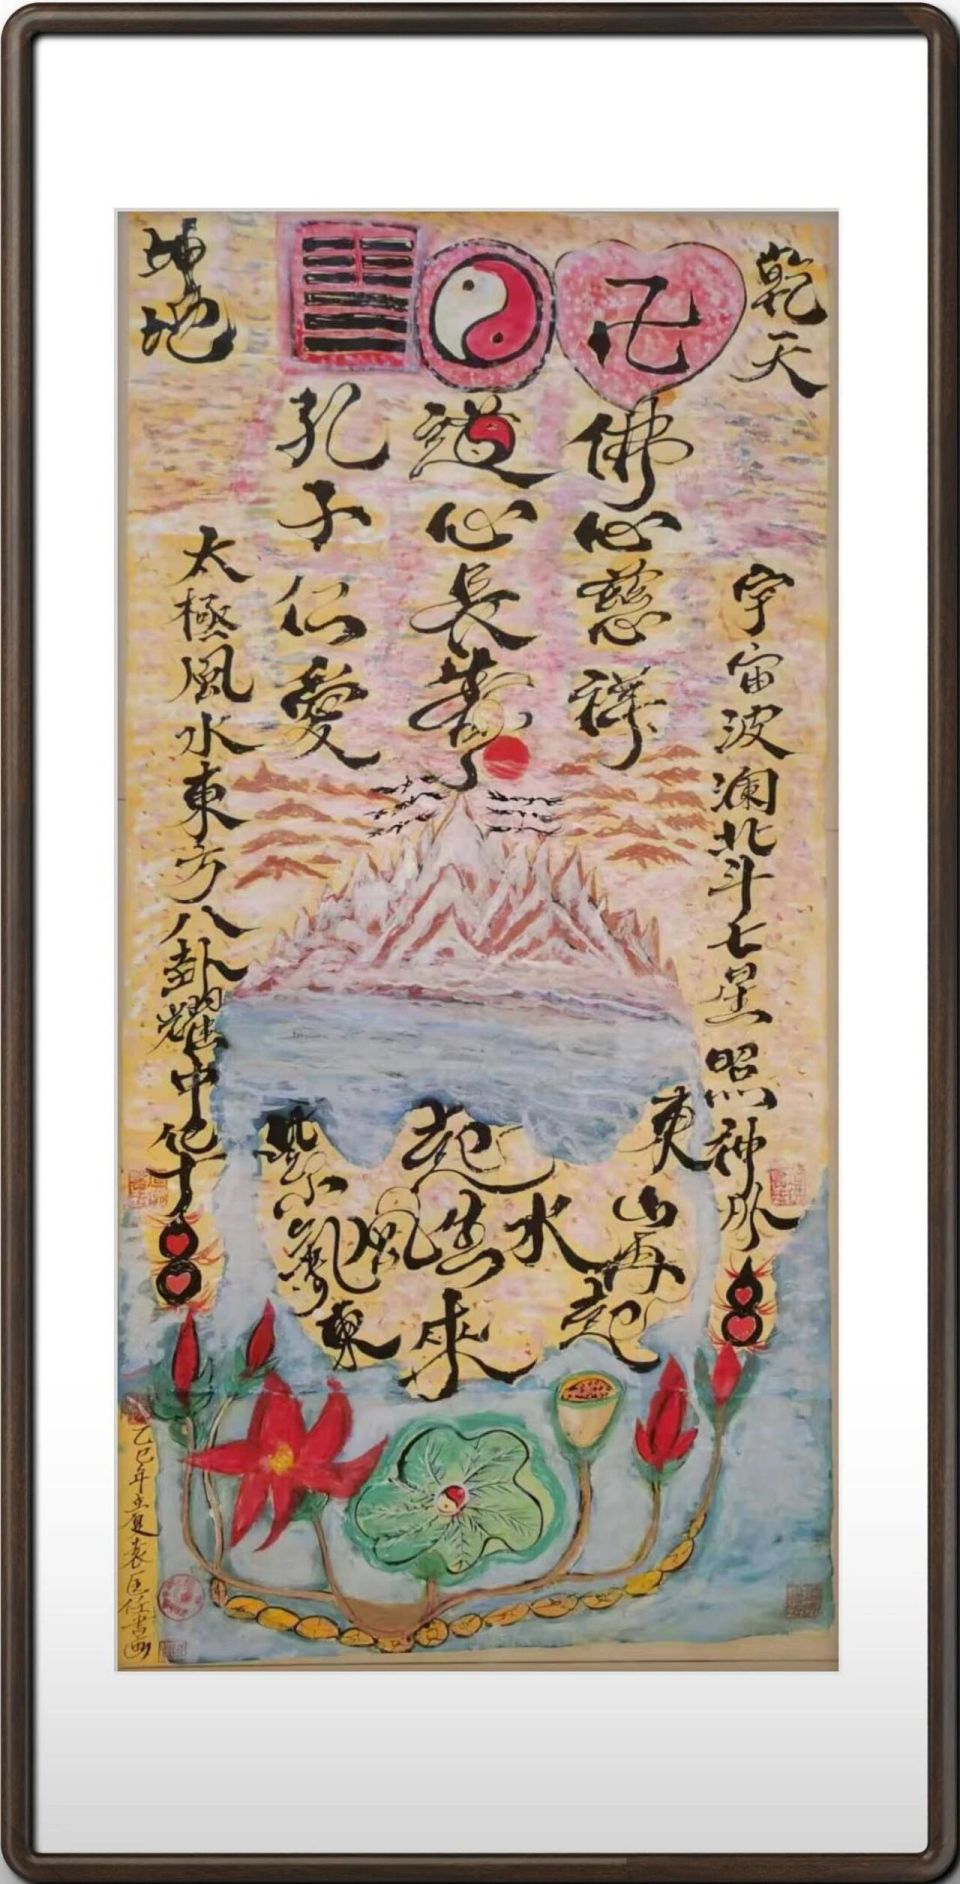 乾天
坤地
卍
佛心慈祥
道心長壽
孔子仁愛
宇宙波瀾北斗七星照神州
太極風水東方八卦耀中華
東山再起
水
風生
起
紫氣東來
乙巳年立夏袁匡任書畫